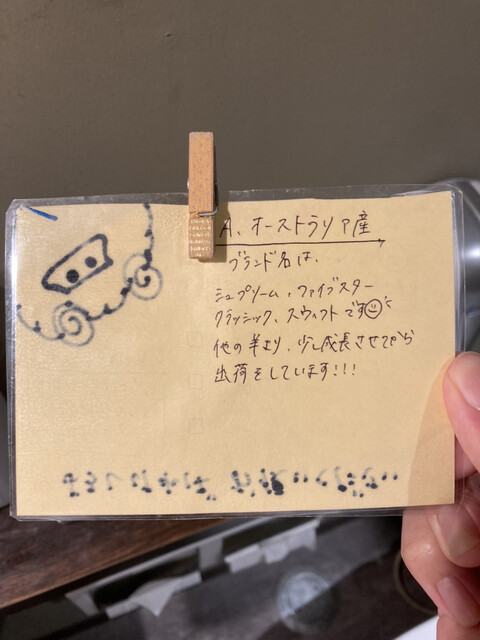 A、オーストラリア産
ブランド名は、
シュプリーム、ファイブスター
クラッシック、スウィフトです
他の羊より、少し成長させてから
出荷をしています!!!
よろしければ お使いください